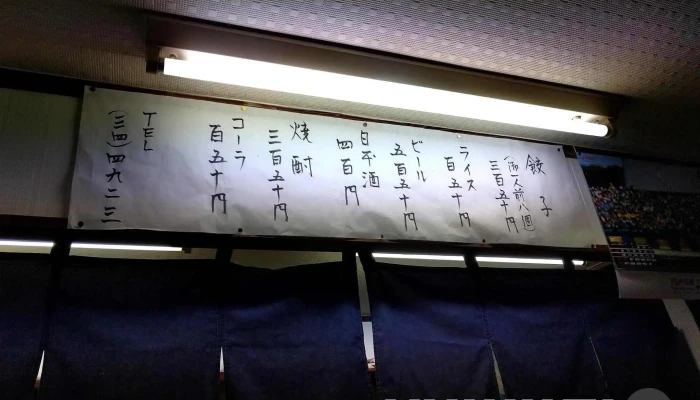 餃子
(一人前八個)
三百五十円
ライス
百五十円
ビール
五百五十円
日本酒
四百円
焼酎
三百五十円
コーラ
百五十円
TEL
(三四)四九二三